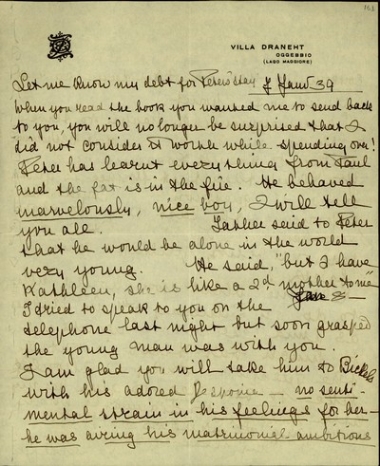 VILLA DRANEHT
OGGEBBIO
(LAGO MAGGIORE)
Let me know my debt for Peter's stay 7 Jan 39
When you read the book you wanted me to send back
to you, you will no longer be surprised that I
did not consider it worth while spending one!
Peter has learnt everything from Paul
and the fat is in the fire. He behaved
marvelously, nice boy, I will tell
you all. Father said to Peter
that he would be alone in the world
very young. He said, "but I have
Kathleen, she is like a 2d mother to me"
I tried to speak to you on the
telephone last night but soon grasped
the young man was with you.
I am glad you will take him to
with his adored — no senti-
mental strain in his feelings for her—
he was airing his matrimonial ambitions